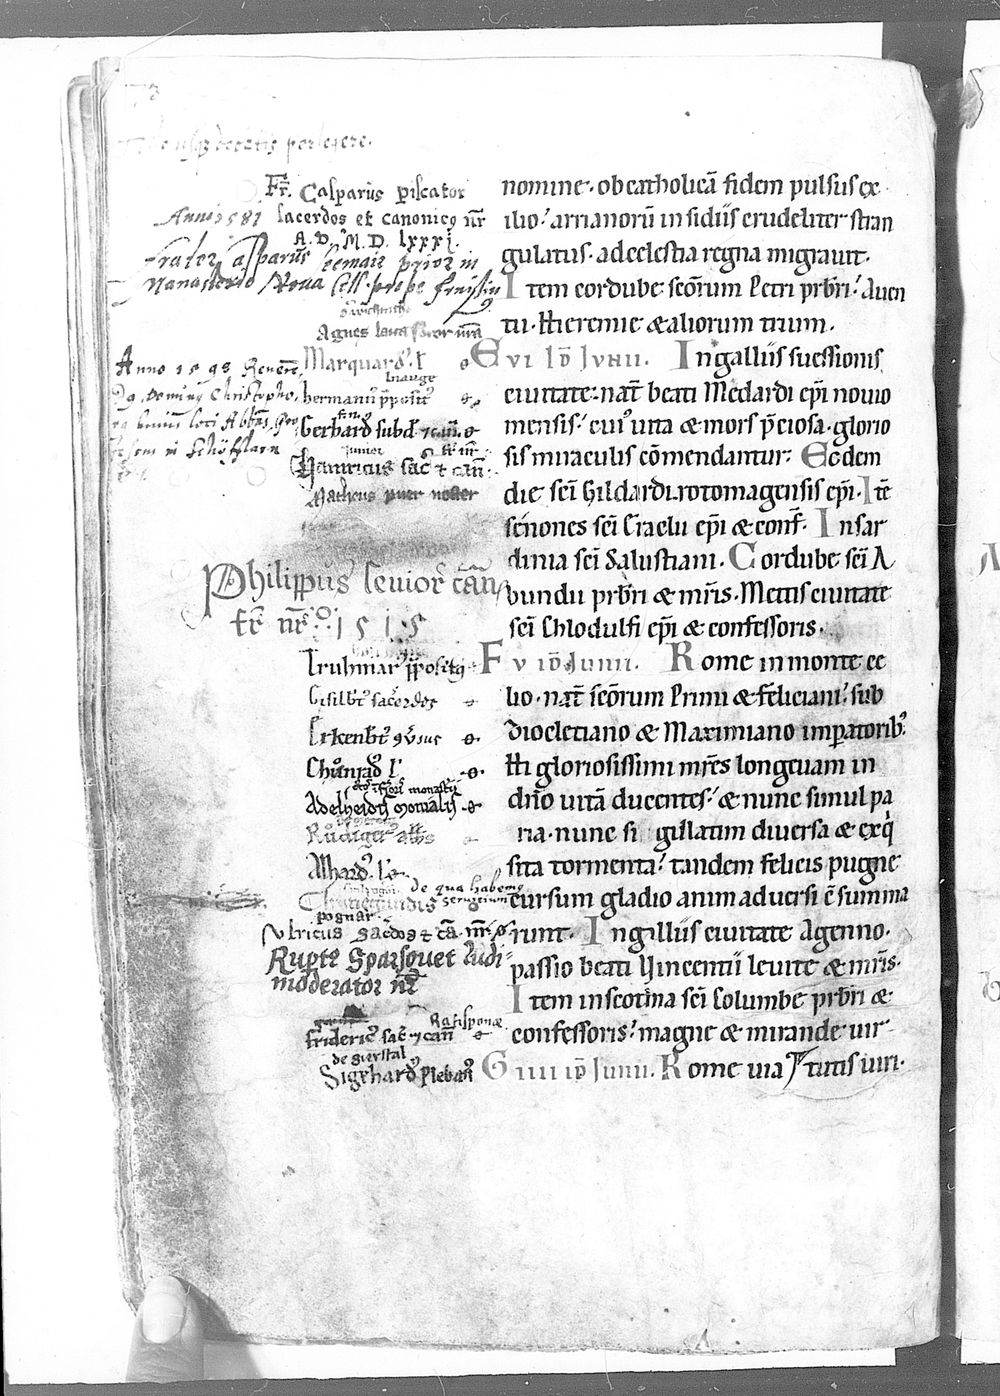 usq; decetis perlegere.
Fr̄. Casparus piscator
Anno 1581 sacerdos et canonicꝰ nr̄
A. D. M. D. lxxxi.
frater Casparus prior in
Manasterio Noua Cell prope freysin
Agnes laica soror nr̄a
Marquardꝰ l̄
Anno 1598 Reuerē
hermannꝰ pp̄osit9
Dominꝰ Christopho
Gerhardꝰ subd̄ ⁊ can̄.
huius loci Abbas
iunior
Hainricus sac̄ ⁊ can̄
in Schöfftlarn
Matheus puer noster
Philippus senior can̄
fr̄ nr̄ : 1515
Truhmarꝰ pp̄ositꝰ
Gisilbt̄ sacerdos
Erkenbt̄ ꝯũsus
Chůnradꝰ l̄
Adelheidis monialis
Růdigerꝰ abb̄s
Alhardꝰ l̄
de qua habemꝰ
seruicium
pognar
Vlricus Sac̄dos ⁊ cā. nr̄
Rupt̄ Sparsguet Ludi-
moderator nr̄
Ratisponae
fridericꝰ sac̄ ⁊ can̄
de gierstal
Sigehardꝰ plebanꝰ
nomine. ob catholicā fidem pulsus ex
ilio; arrianorū insidiis crudeliter stran
gulatus. ad celestia regna migrauit.
Item cordube sc̄orum Petri prb̄ri; Auen
tii. Hieremie & aliorum trium.
E VI ID IVNII. In galliis suessionis
ciuitate: nat̄ beati Medardi ep̄i nouio
mensis; cuiꝰ uita & mors p̄ciosa. glorio
sis miraculis cōmendantur. Eodem
die sc̄i Gildardi rotomagensis ep̄i. Itē
senones sc̄i Eraclii ep̄i & conf̄. In sar
dinia sc̄i Salustiani. Cordube sc̄i A
bundii prb̄ri & mr̄is. Mettis ciuitate
sc̄i Chlodulfi ep̄i & confessoris.
F V ID IVNII. Rome in monte ce
lio. nat̄ sc̄orum Primi & feliciani; sub
diocletiano & Maximiano imperatoribꝰ.
Hi gloriosissimi mr̄es longeuam in
dn̄o uitā ducentes; & nunc simul pa
ria. nunc si gillatim diuersa & exq̇
sita tormenta; tandem felicis pugne
cursum gladio animaduersi c̄summa
runt. In gilliis ciuitate Agenno.
passio beati Vincentii leuite & mr̄is.
Item in scothia sc̄i Columbe prb̄ri &
confessoris; magne & mirande uir
G IIII ID IVNII. Rome uia tutis uiri.